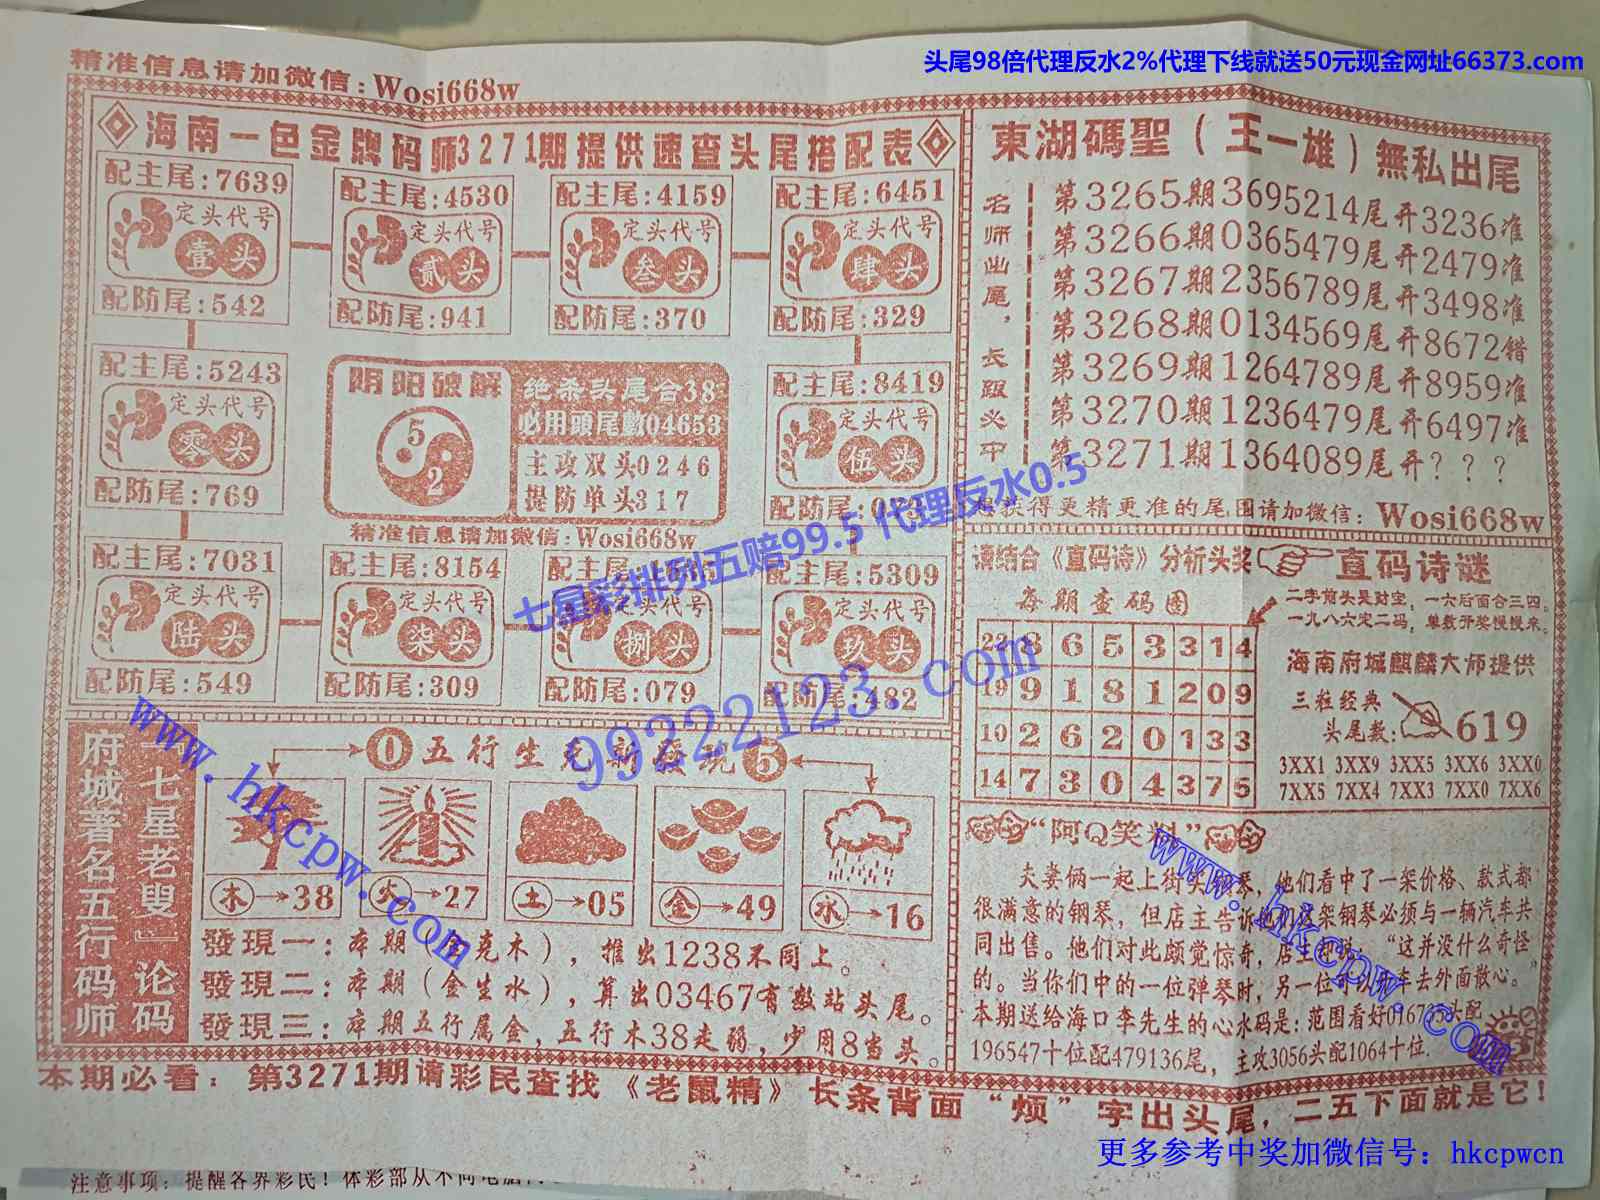 头尾98倍代理反水2%代理下线就送50元现金网址66373.com
精准信息请加微信：Wosi668w
海南一色金牌码师3271期提供速查头尾搭配表
配主尾:7639
定头代号
壹头
配防尾:542
配主尾:4530
定头代号
贰头
配防尾:941
配主尾:4159
定头代号
叁头
配防尾:370
配主尾:6451
定头代号
肆头
配防尾:329
配主尾:5243
定头代号
零头
配防尾:769
阴阳破解
5
2
绝杀头尾合38
必用頭尾數04653
主攻双头0246
提防单头317
精准信息请加微信:Wosi668w
配主尾:8419
定头代号
伍头
配防尾:
配主尾:7031
定头代号
陆头
配防尾:549
配主尾:8154
定头代号
柒头
配防尾:309
配主尾:
定头代号
捌头
配防尾:079
配主尾:5309
定头代号
玖头
配防尾:482
東湖碼聖（王一雄）無私出尾
名师出尾，长跟必中
第3265期3695214尾开3236准
第3266期0365479尾开2479准
第3267期2356789尾开3498准
第3268期0134569尾开8672错
第3269期1264789尾开8959准
第3270期1236479尾开6497准
第3271期1364089尾开？？？
想获得更精更准的尾围请加微信：Wosi668w
请结合《直码诗》分析头奖
直码诗谜
每期查码图
22 8 6 5 3 3 1 4
19 9 1 8 1 2 0 9
10 2 6 2 0 1 3 3
14 7 3 0 4 3 7 5
二字前头是财宝，一六后面合三四。
一九八六定二码，单数开奖慢慢来。
海南府城麒麟大师提供
三粒经典
头尾数:
619
3XX1 3XX9 3XX5 3XX6 3XX0
7XX5 7XX4 7XX3 7XX0 7XX6
府城著名五行码师
『七星老叟』论码
1 五行生克新發現 6
木→38
火→27
土→05
金→49
水→16
發現一：本期（金克木），推出1238不同上。
發現二：本期（金生水），算出03467有数站头尾。
發現三：本期五行属金，五行木38走弱，少用8当头。
“阿Q笑料”
夫妻俩一起上街买钢琴，他们看中了一架价格、款式都
很满意的钢琴，但店主告诉他们这架钢琴必须与一辆汽车共
同出售。他们对此颇觉惊奇，店主却说：“这并没什么奇怪
的。当你们中的一位弹琴时，另一位可以开车去外面散心。”
本期送给海口李先生的心水码是：范围看好016735头配
196547十位配479136尾，主攻3056头配1064十位.
本期必看：第3271期请彩民查找《老鼠精》长条背面“烦”字出头尾，二五下面就是它！
七星彩排列五赔99.5 代理反水0.5
99222123.com
www.hkcpw.com
www.hkcpw.com
更多参考中奖加微信号：hkcpwcn
注意事项：提醒各界彩民！体彩部从不向